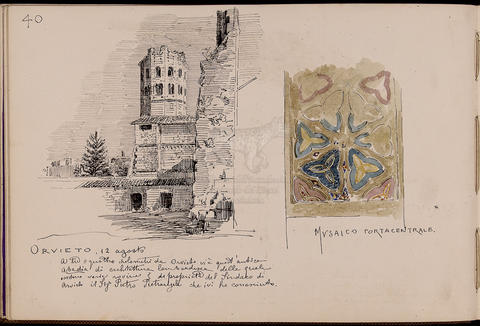 40
ORVIETO, 12 agosto
A tre o quattro chilometri da Orvieto vi è quest'antica
abadia di architettura lombardesca delle quale
restano varie rovine è di proprietà del Sindaco di
Orvieto il Sig. Pietro che ivi ho conosciuto.
MVSAICO PORTACENTRALE.